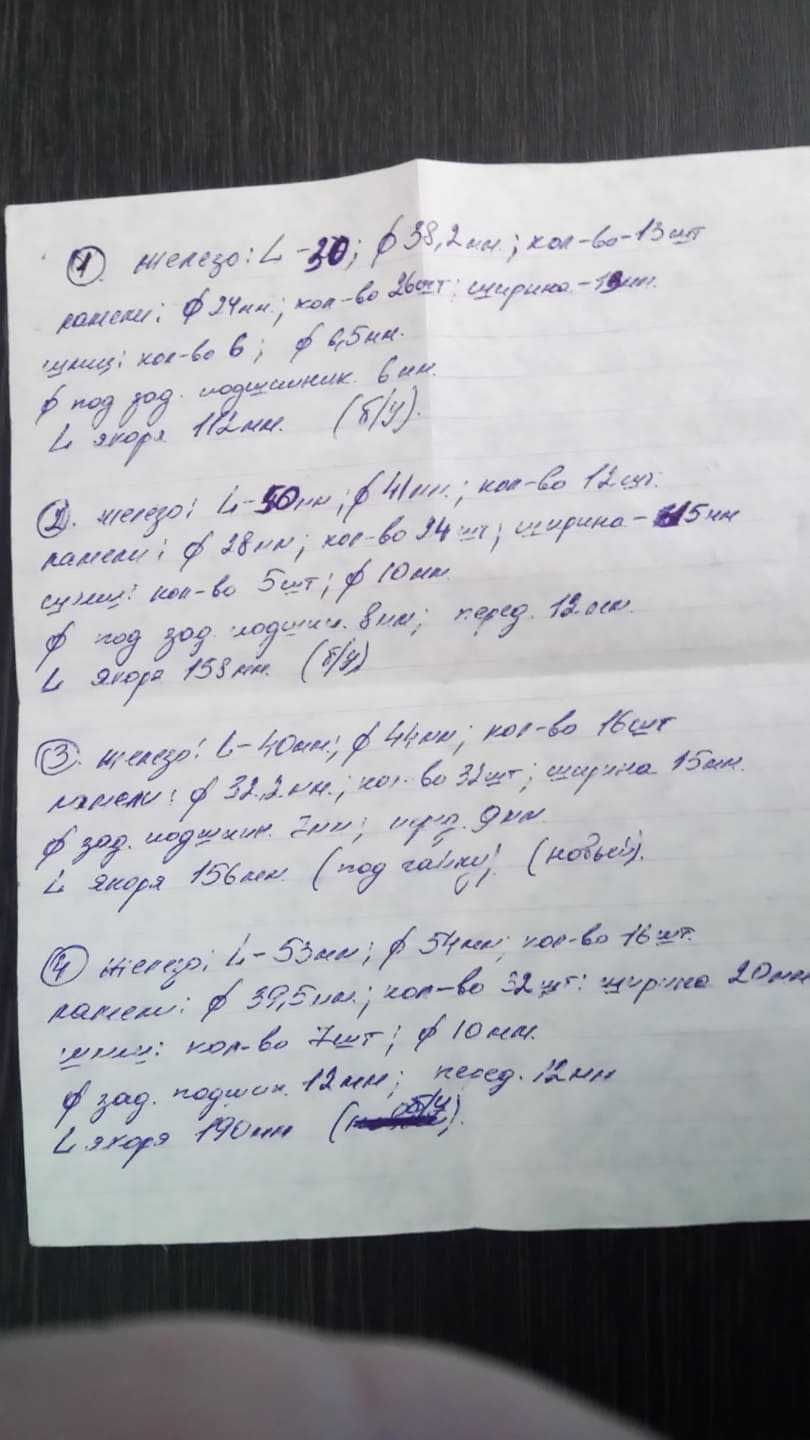 ① железо: L-30; ϕ 38,2 мм.; кол-во-13 шт
ламели: ϕ 24 мм.; кол-во 26 шт; ширина - мм.
шлиц: кол-во 6; ϕ 6,5 мм.
ϕ под зад. подшипник. 6 мм.
L якоря 112 мм. (б/у).
②. железо: L-50 мм; ϕ 41 мм.; кол-во 12 шт.
ламели: ϕ 28 мм; кол-во 24 шт; ширина - 15 мм
шлиц: кол-во 5 шт; ϕ 10 мм.
ϕ под зад. подшип. 8 мм; перед. 12 мм.
L якоря 158 мм. (б/у)
③. железо: L-40 мм; ϕ 44 мм; кол-во 16 шт
ламели: ϕ 32,2 мм.; кол-во 32 шт; ширина 15 мм.
ϕ зад. подшип. 7 мм; перед. 9 мм.
L якоря 156 мм. (под гайку). (новый).
④ железо; L-53 мм; ϕ 54 мм; кол-во 16 шт.
ламели: ϕ 39,5 мм.; кол-во 32 шт: ширина 20 мм
шлиц: кол-во 7 шт; ϕ 10 мм.
ϕ зад. подшип. 12 мм; перед. 12 мм
L якоря 190 мм (б/у).